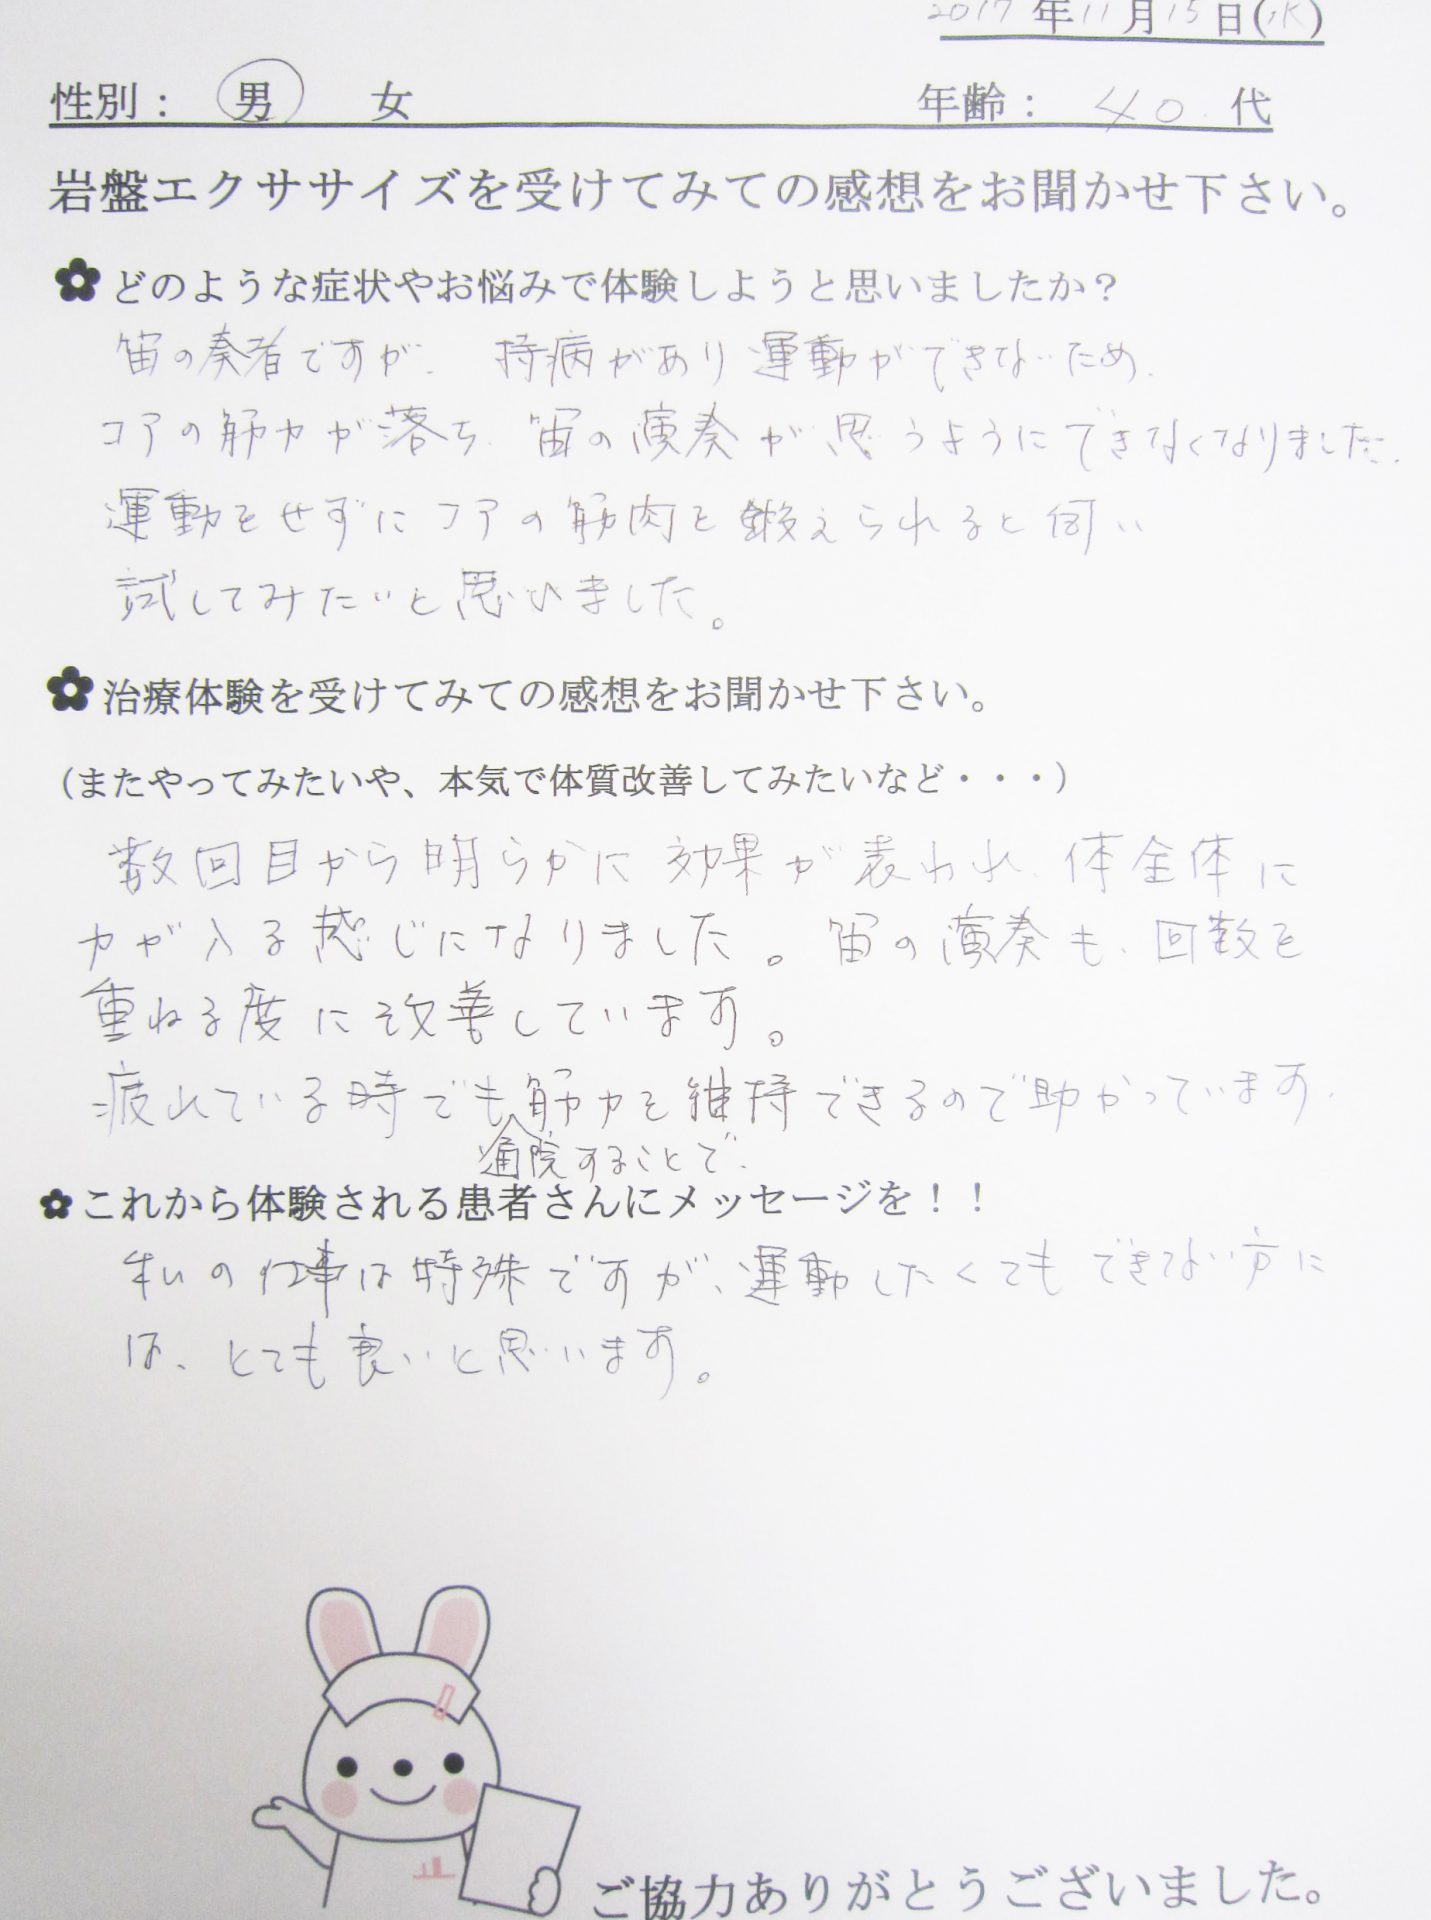 2017年11月15日(水)
性別： 男 女 年齢： 40代
岩盤エクササイズを受けてみての感想をお聞かせ下さい。
どのような症状やお悩みで体験しようと思いましたか？
笛の奏者ですが、持病があり運動ができないため、
コアの筋力が落ち、笛の演奏が思うようにできなくなりました。
運動をせずにコアの筋肉を鍛えられると伺い
試してみたいと思いました。
治療体験を受けてみての感想をお聞かせ下さい。
(またやってみたいや、本気で体質改善してみたいなど・・・)
数回目から明らかに効果が表われ、体全体に
力が入る感じになりました。笛の演奏も、回数を
重ねる度に改善しています。
疲れている時でも筋力を維持できるので助かっています。
通院することで、
これから体験される患者さんにメッセージを！！
私の仕事は特殊ですが、運動したくてもできない方に
は、とても良いと思います。
ご協力ありがとうございました。